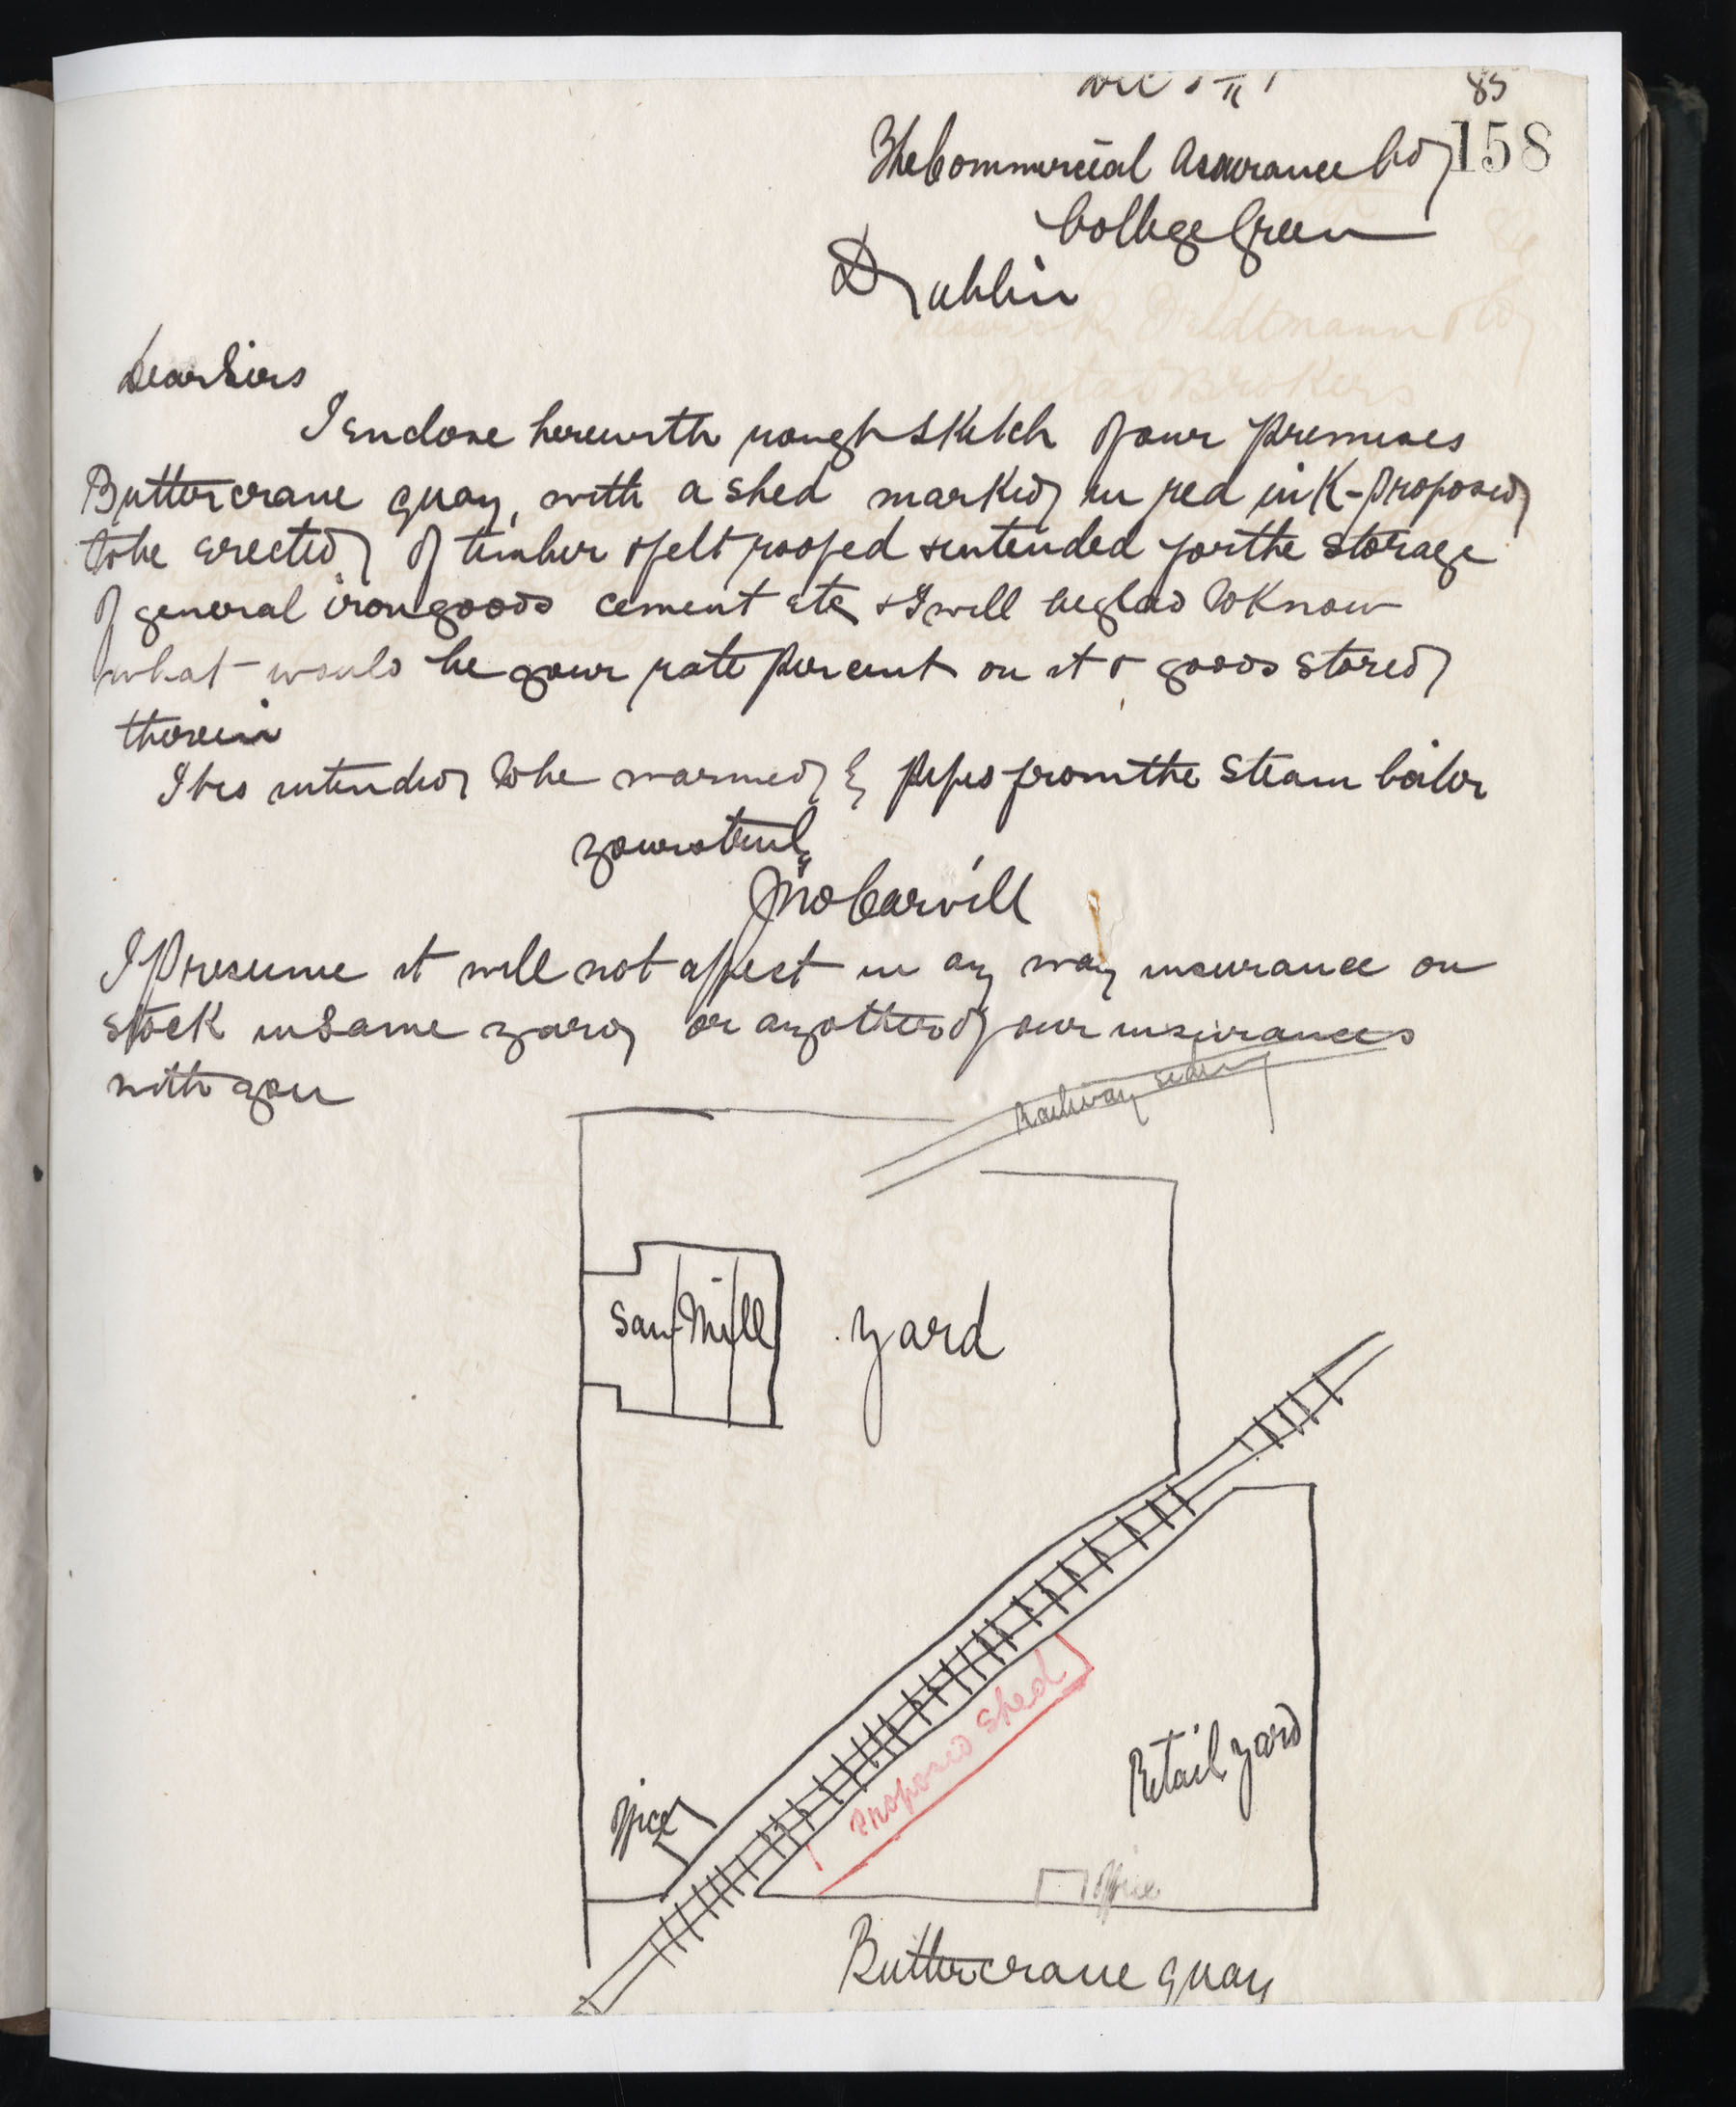 Dec
85
158
The Commercial Assurance Co
College Green
Dublin
Dear Sirs
I Enclose herewith rough sketch of our premises
Buttercrane quay, with a shed marked in red ink - proposed
to be erected of timber & felt roofed & intended for the storage
of general iron goods cement etc & I will be glad to know
what would be your rate per cent on it & goods stored
therein
It is intended to be warmed by pipes from the steam boiler
yours truly
Jno Carvill
I presume it will not affect in any way insurance on
stock in same yard or any other of our insurances
with you
Railway siding
Saw Mill
yard
Proposed Shed
Retail yard
Office
Office
Buttercrane quay